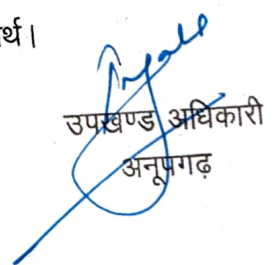 र्थ।
उपखण्ड अधिकारी
अनूपगढ़